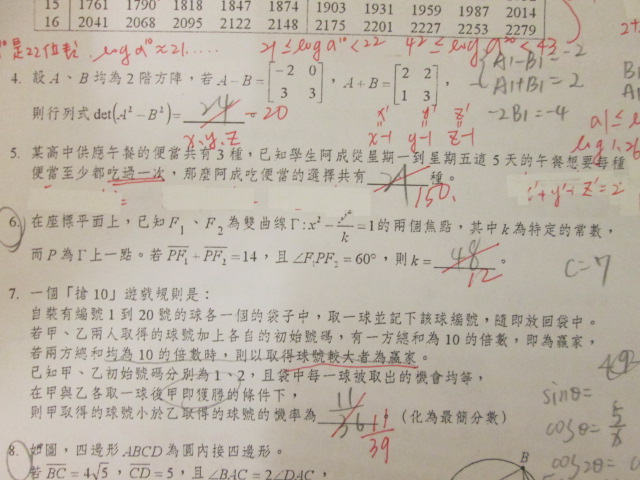 15 1761 1790 1818 1847 1874 1903 1931 1959 1987 2014
16 2041 2068 2095 2122 2148 2175 2201 2227 2253 2279
是22位數 log a¹⁰ ≈ 21..... 21 ≤ log a¹⁰ < 22 42 ≤ log a²⁰ < 43
4. 設 A、B 均為 2 階方陣，若 A−B = [−2 0; 3 3]，A+B = [2 2; 1 3]，
A1−B1 = −2
A1+B1 = 2
−2B1 = −4
則行列式 det(A²−B²) = 24 −20
x' y' z'
x−1 y−1 z−1
x、y、z
5. 某高中供應午餐的便當共有 3 種，已知學生阿成從星期一到星期五這 5 天的午餐想要每種
便當至少都吃過一次，那麼阿成吃便當的選擇共有 21 種。
150
6. 在座標平面上，已知 F₁、F₂ 為雙曲線 Γ: x² − y²/k = 1 的兩個焦點，其中 k 為特定的常數，
而 P 為 Γ 上一點。若 PF₁ + PF₂ = 14，且 ∠F₁PF₂ = 60°，則 k = 48 。
12
C = 7
7. 一個「搶 10」遊戲規則是：
自裝有編號 1 到 20 號的球各一個的袋子中，取一球並記下該球編號，隨即放回袋中。
若甲、乙兩人取得的球號加上各自的初始號碼，有一方總和為 10 的倍數，即為贏家，
若兩方總和均為 10 的倍數時，則以取得球號較大者為贏家。
已知甲、乙初始號碼分別為 1、2，且袋中每一球被取出的機會均等，
在甲與乙各取一球後甲即獲勝的條件下，
則甲取得的球號小於乙取得的球號的機率為 11/36 （化為最簡分數）
11/39
sinθ =
cosθ = 5/x
cos2θ =
8. 如圖，四邊形 ABCD 為圓內接四邊形。
B
若 BC = 4√5，CD = 5，且 ∠BAC = 2∠DAC，